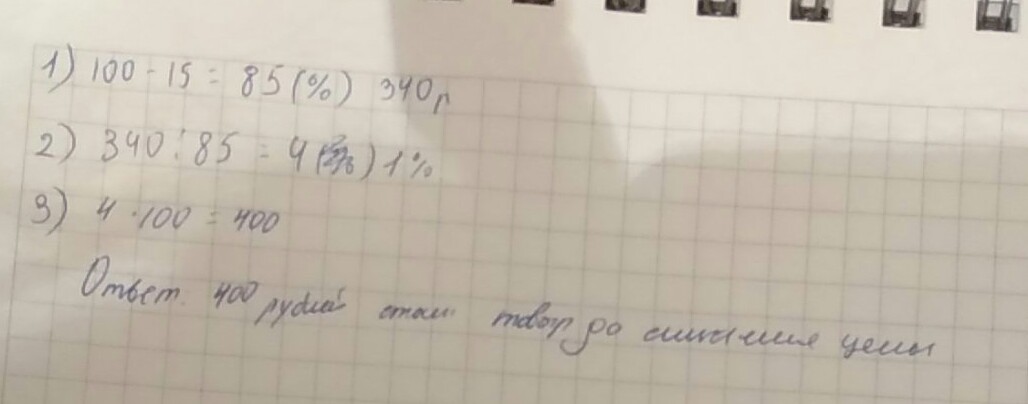 1) 100 - 15 = 85 (%) 340 р
2) 340 : 85 = 4 () 1%
3) 4 · 100 = 400
Ответ. 400 рублей стоил товар до снижения цены